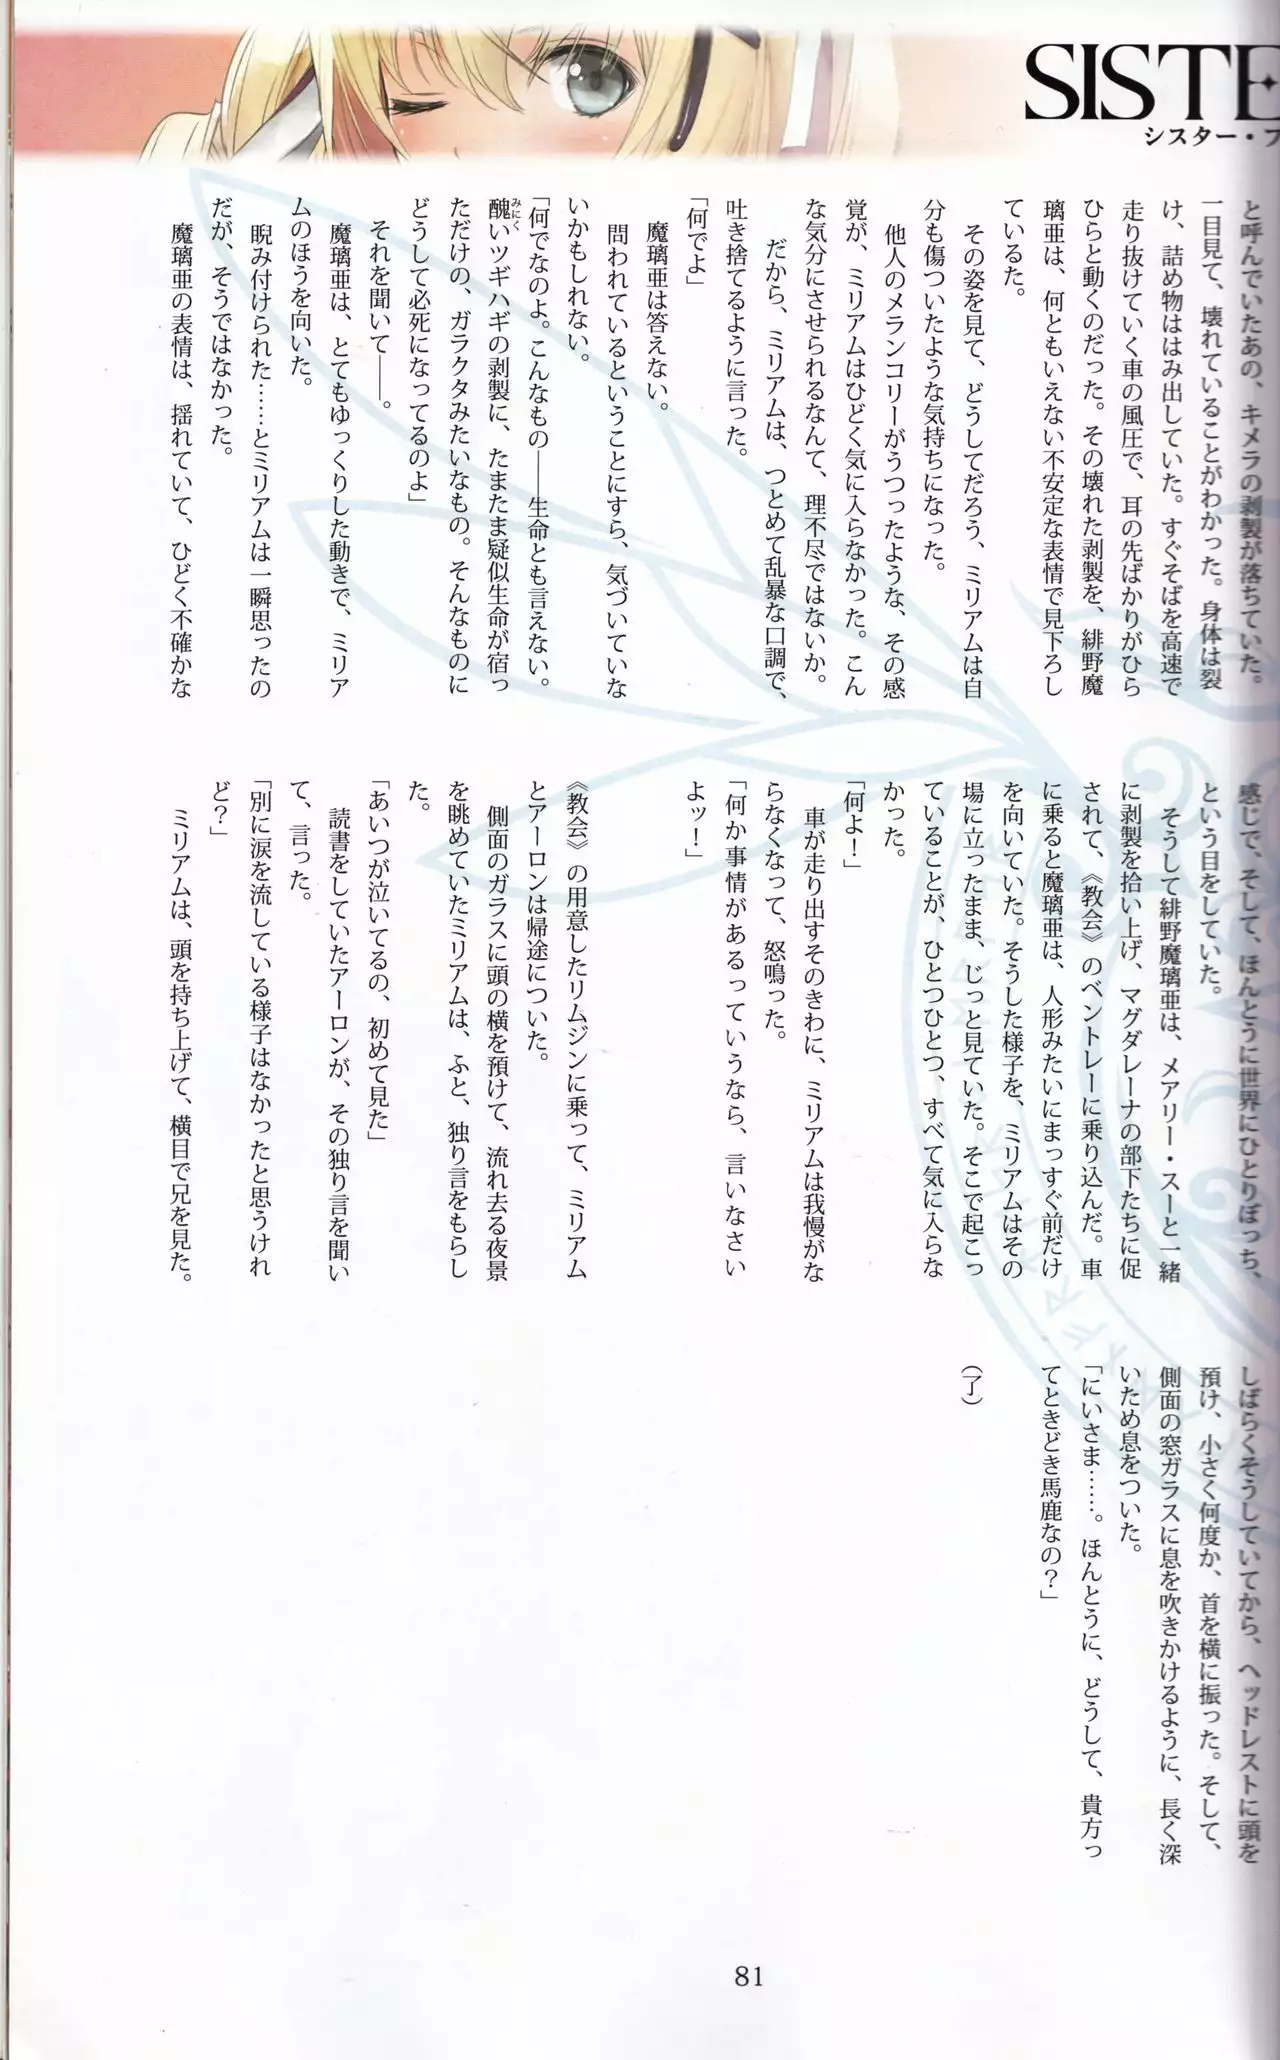 SISTE
シスター・フ
と呼んでいたあの、キメラの剥製が落ちていた。
一目見て、壊れていることがわかった。身体は裂
け、詰め物ははみ出していた。すぐそばを高速で
走り抜けていく車の風圧で、耳の先ばかりがひら
ひらと動くのだった。その壊れた剥製を、緋野魔
璃亜は、何ともいえない不安定な表情で見下ろし
ているた。
その姿を見て、どうしてだろう、ミリアムは自
分も傷ついたような気持ちになった。
他人のメランコリーがうつったような、その感
覚が、ミリアムはひどく気に入らなかった。こん
な気分にさせられるなんて、理不尽ではないか。
だから、ミリアムは、つとめて乱暴な口調で、
吐き捨てるように言った。
「何でよ」
魔璃亜は答えない。
問われているということにすら、気づいていな
いかもしれない。
「何でなのよ。こんなもの――生命とも言えない。
醜いツギハギの剥製に、たまたま疑似生命が宿っ
みにく
ただけの、ガラクタみたいなもの。そんなものに
どうして必死になってるのよ」
それを聞いて――。
魔璃亜は、とてもゆっくりした動きで、ミリア
ムのほうを向いた。
睨み付けられた……とミリアムは一瞬思ったの
だが、そうではなかった。
魔璃亜の表情は、揺れていて、ひどく不確かな
感じで、そして、ほんとうに世界にひとりぼっち、
という目をしていた。
そうして緋野魔璃亜は、メアリー・スーと一緒
に剥製を拾い上げ、マグダレーナの部下たちに促
されて、《教会》のベントレーに乗り込んだ。車
に乗ると魔璃亜は、人形みたいにまっすぐ前だけ
を向いていた。そうした様子を、ミリアムはその
場に立ったまま、じっと見ていた。そこで起こっ
ていることが、ひとつひとつ、すべて気に入らな
かった。
「何よ！」
車が走り出すそのきわに、ミリアムは我慢がな
らなくなって、怒鳴った。
「何か事情があるっていうなら、言いなさい
よッ！」
《教会》の用意したリムジンに乗って、ミリアム
とアーロンは帰途についた。
側面のガラスに頭の横を預けて、流れ去る夜景
を眺めていたミリアムは、ふと、独り言をもらし
た。
「あいつが泣いてるの、初めて見た」
読書をしていたアーロンが、その独り言を聞い
て、言った。
「別に涙を流している様子はなかったと思うけれ
ど？」
ミリアムは、頭を持ち上げて、横目で兄を見た。
しばらくそうしていてから、ヘッドレストに頭を
預け、小さく何度か、首を横に振った。そして、
側面の窓ガラスに息を吹きかけるように、長く深
いため息をついた。
「にいさま……。ほんとうに、どうして、貴方っ
てときどき馬鹿なの？」
（了）
81